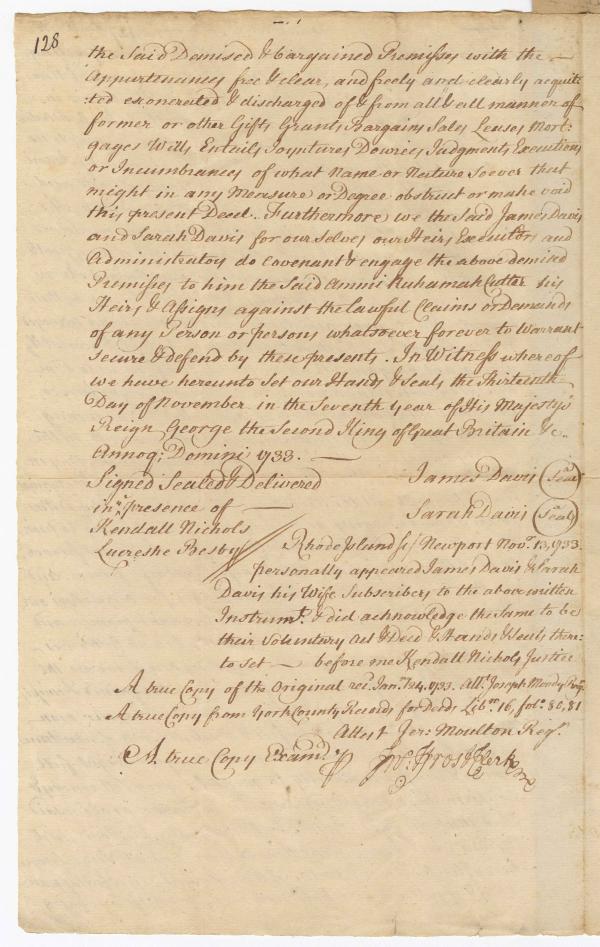 128
the Said Demised & bargained Premisses with the
Appurtenances free & clear, and freely and clearly acquit
:ted exonerated & discharged of & from all & all manner of
former or other Gifts Grants Bargains Sales Leases Mort:
gages Wills Entails Joyntures Dowries Judgments Executions
or Incumbrances of what Name or Nature soever that
might in any Measure or Degree obstruct or make void
this present Deed. Furthermore we the Said James Davis
and Sarah Davis for our selves our Heirs Executors and
Administrators do Covenant & engage the above demised
Premisses to him the Said Ammi Ruhamah Cutter his
Heirs & Assigns against the lawful Claims or Demands
of any Person or persons whatsoever forever to Warrant
secure & defend by these presents. In Witness whereof
we have hereunto Set our Hands & Seals the Thirteenth
Day of November in the Seventh Year of His Majesty's
Reign George the Second King of Great Britain &c.
Annoq: Domini 1733. —
Signed Sealed & Delivered James Davis (Seal)
in presence of — Sarah Davis (Seal)
Kendall Nichols
Lucreshe Besby Rhode Island ss/ Newport Novr. 13, 1733.
personally appeared James Davis & Sarah
Davis his Wife Subscribers to the above written
Instrumt. & did acknowledge the Same to be
their Voluntary Act & Deed & Hands & Seals there:
to set — before me Kendall Nichols Justice
A true Copy of the Original recd. Janr. 24. 1733. Attr. Joseph Moody Regr.
A true Copy from York County Records for Deeds Libro. 16, folo. 80, 81
Attest Jer: Moulton Regr.
A true Copy Examd. p Jno: Frost Clerk